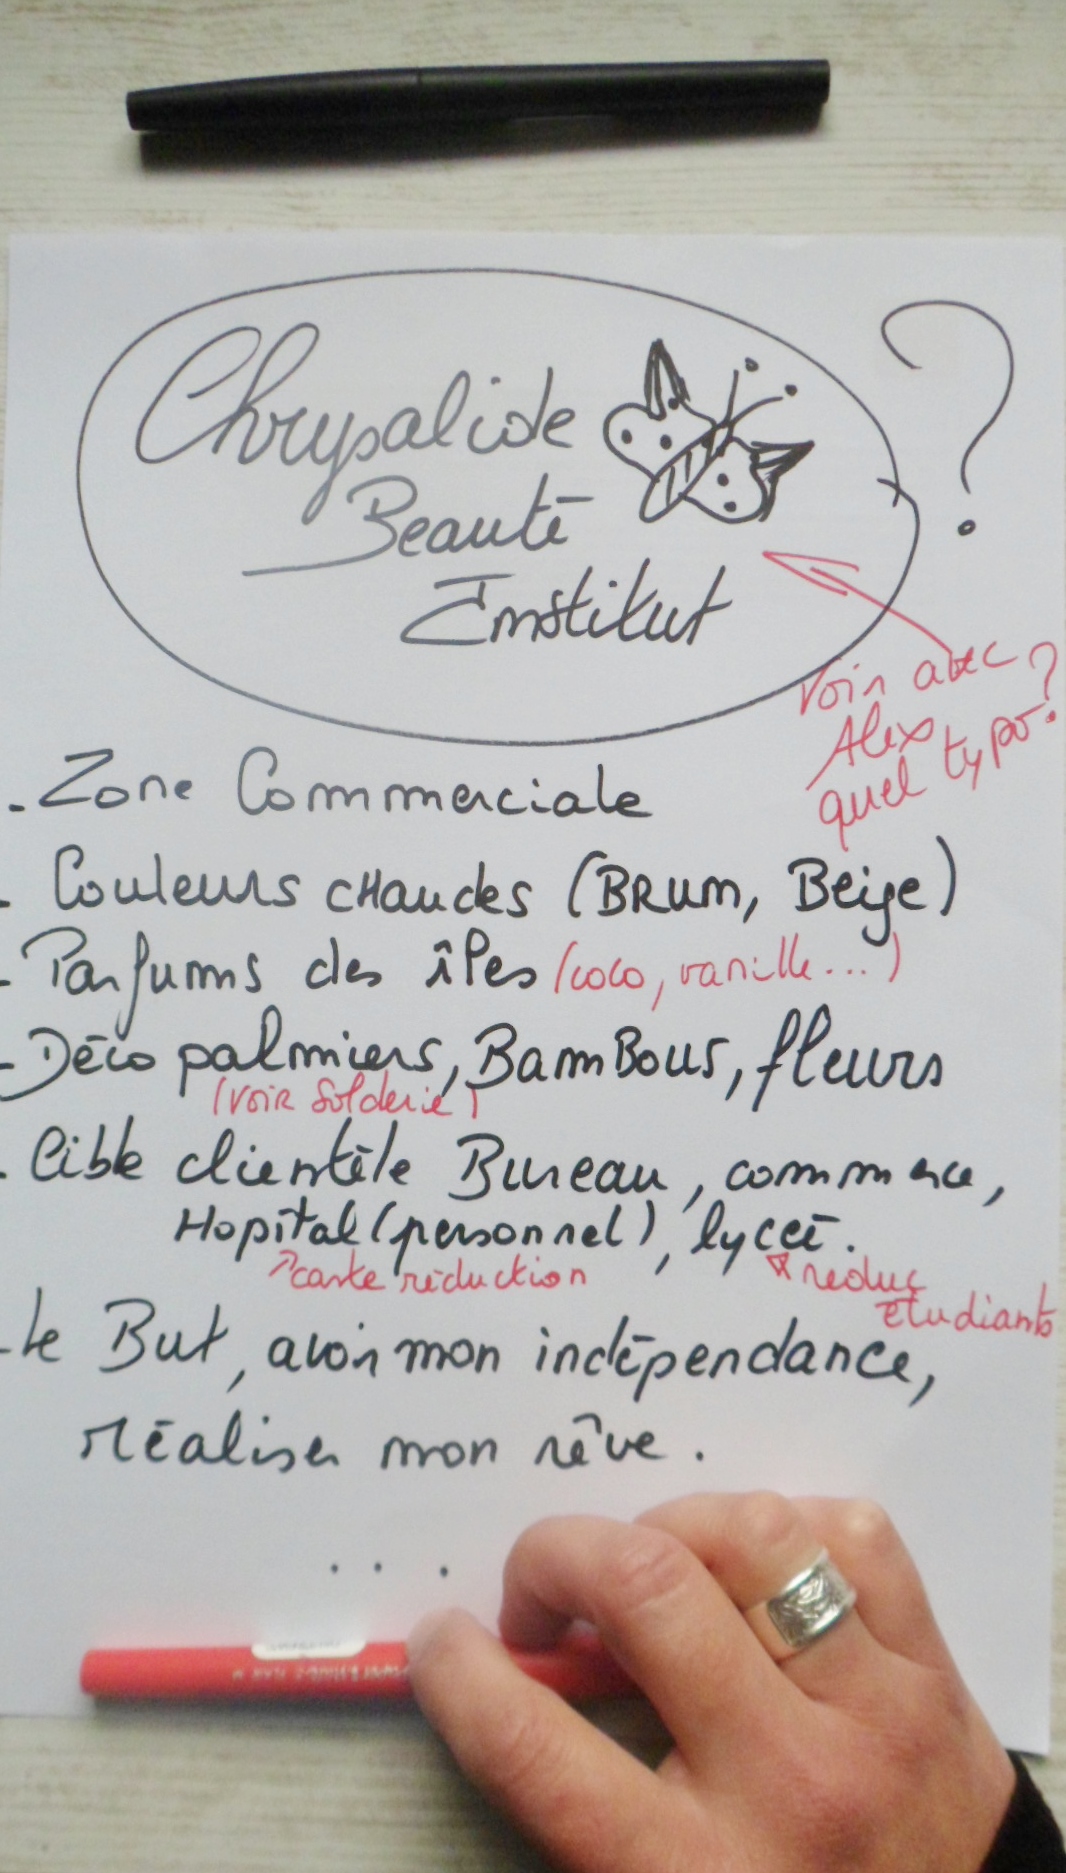 Chrysalide
Beauté
Institut
?
Voir avec
Alex
quel typo?
- Zone Commerciale
- Couleurs chaudes (Brun, Beige)
- Parfums des îles (coco, vanille...)
- Déco palmiers, Bambous, fleurs
(voir Solderie)
- Cible clientèle Bureau, commerce,
Hopital (personnel), lycée.
carte réduction
réduc
étudiants
- Le But, avoir mon indépendance,
réaliser mon rêve.
...